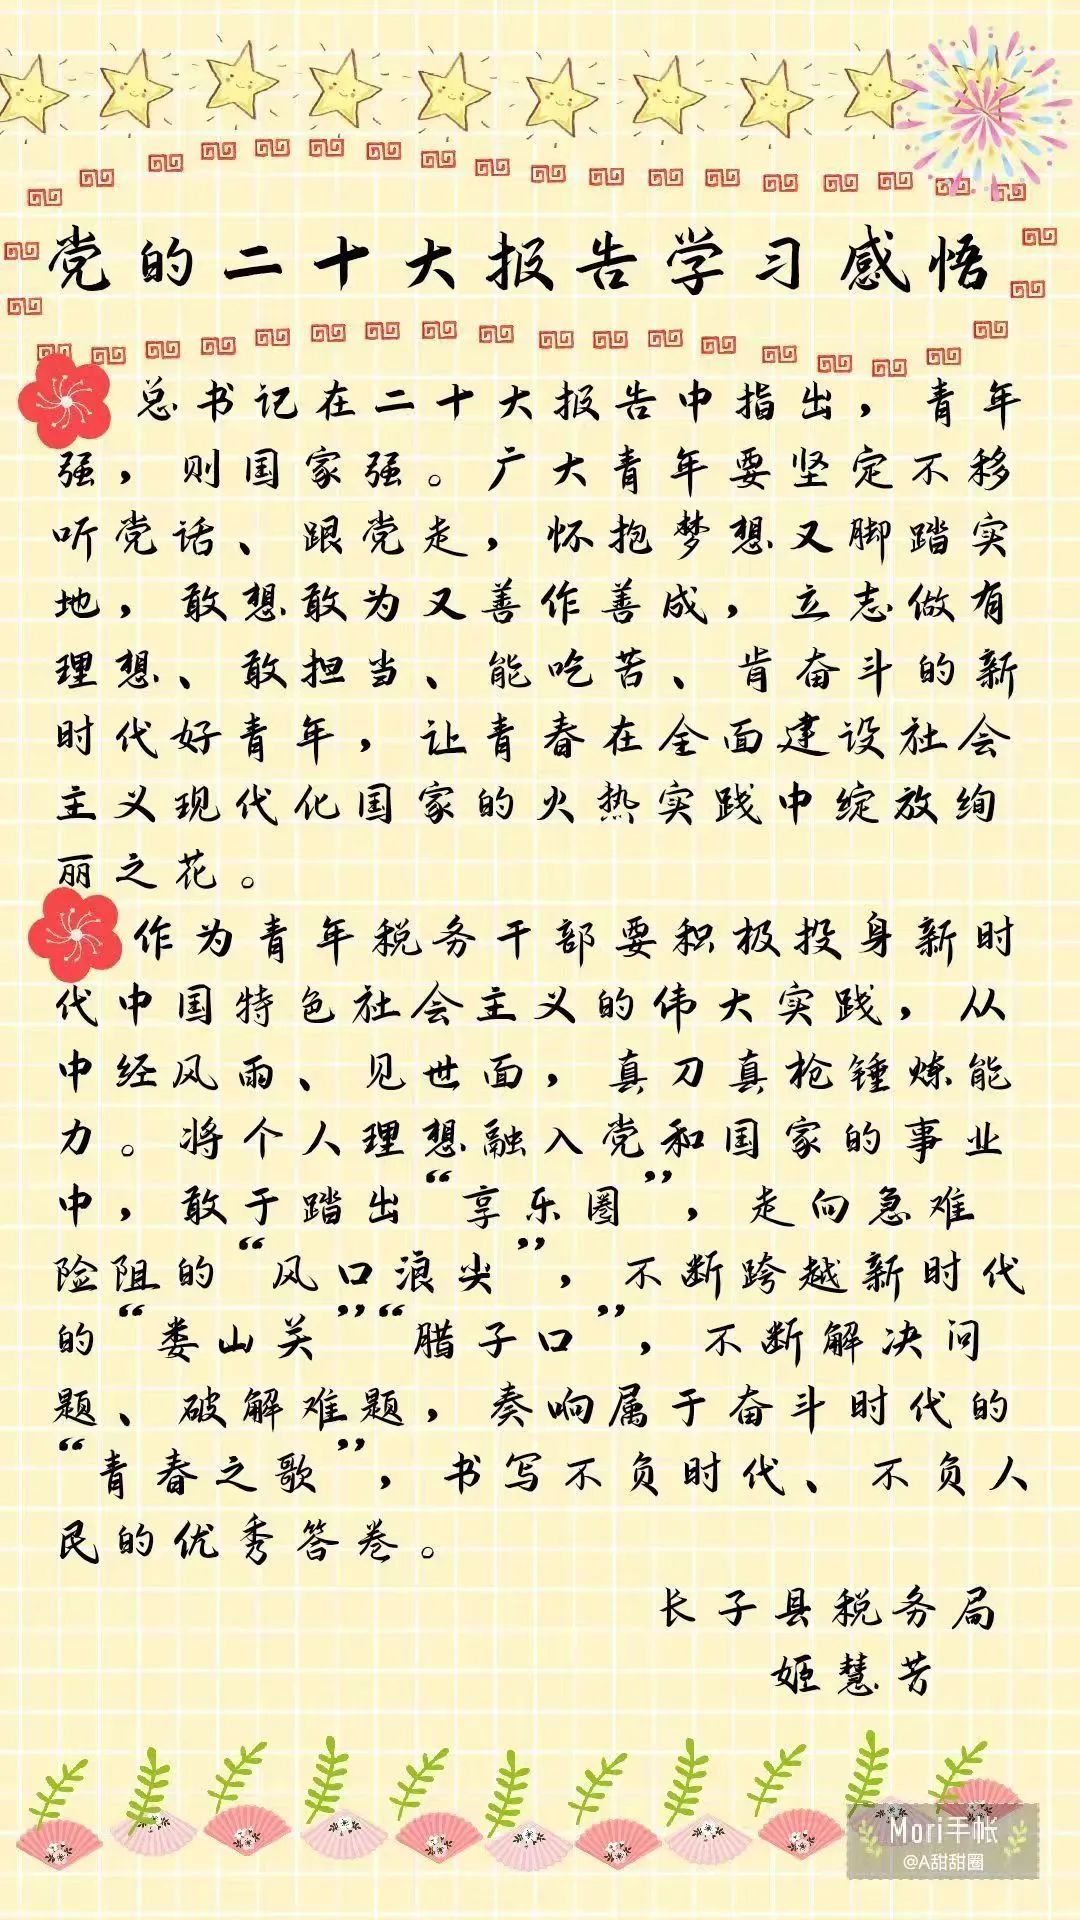 党的二十大报告学习感悟
总书记在二十大报告中指出，青年
强，则国家强。广大青年要坚定不移
听党话、跟党走，怀抱梦想又脚踏实
地，敢想敢为又善作善成，立志做有
理想、敢担当、能吃苦、肯奋斗的新
时代好青年，让青春在全面建设社会
主义现代化国家的火热实践中绽放绚
丽之花。
作为青年税务干部要积极投身新时
代中国特色社会主义的伟大实践，从
中经风雨、见世面，真刀真枪锤炼能
力。将个人理想融入党和国家的事业
中，敢于踏出“享乐圈”，走向急难
险阻的“风口浪尖”，不断跨越新时代
的“娄山关”“腊子口”，不断解决问
题、破解难题，奏响属于奋斗时代的
“青春之歌”，书写不负时代、不负人
民的优秀答卷。
长子县税务局
姬慧芳
Mori手帐
@A甜甜圈